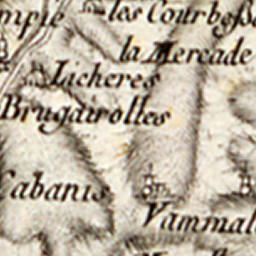 les Courbess
la Mercade
Licheres
Brugairolles
Cabanis
Vammal